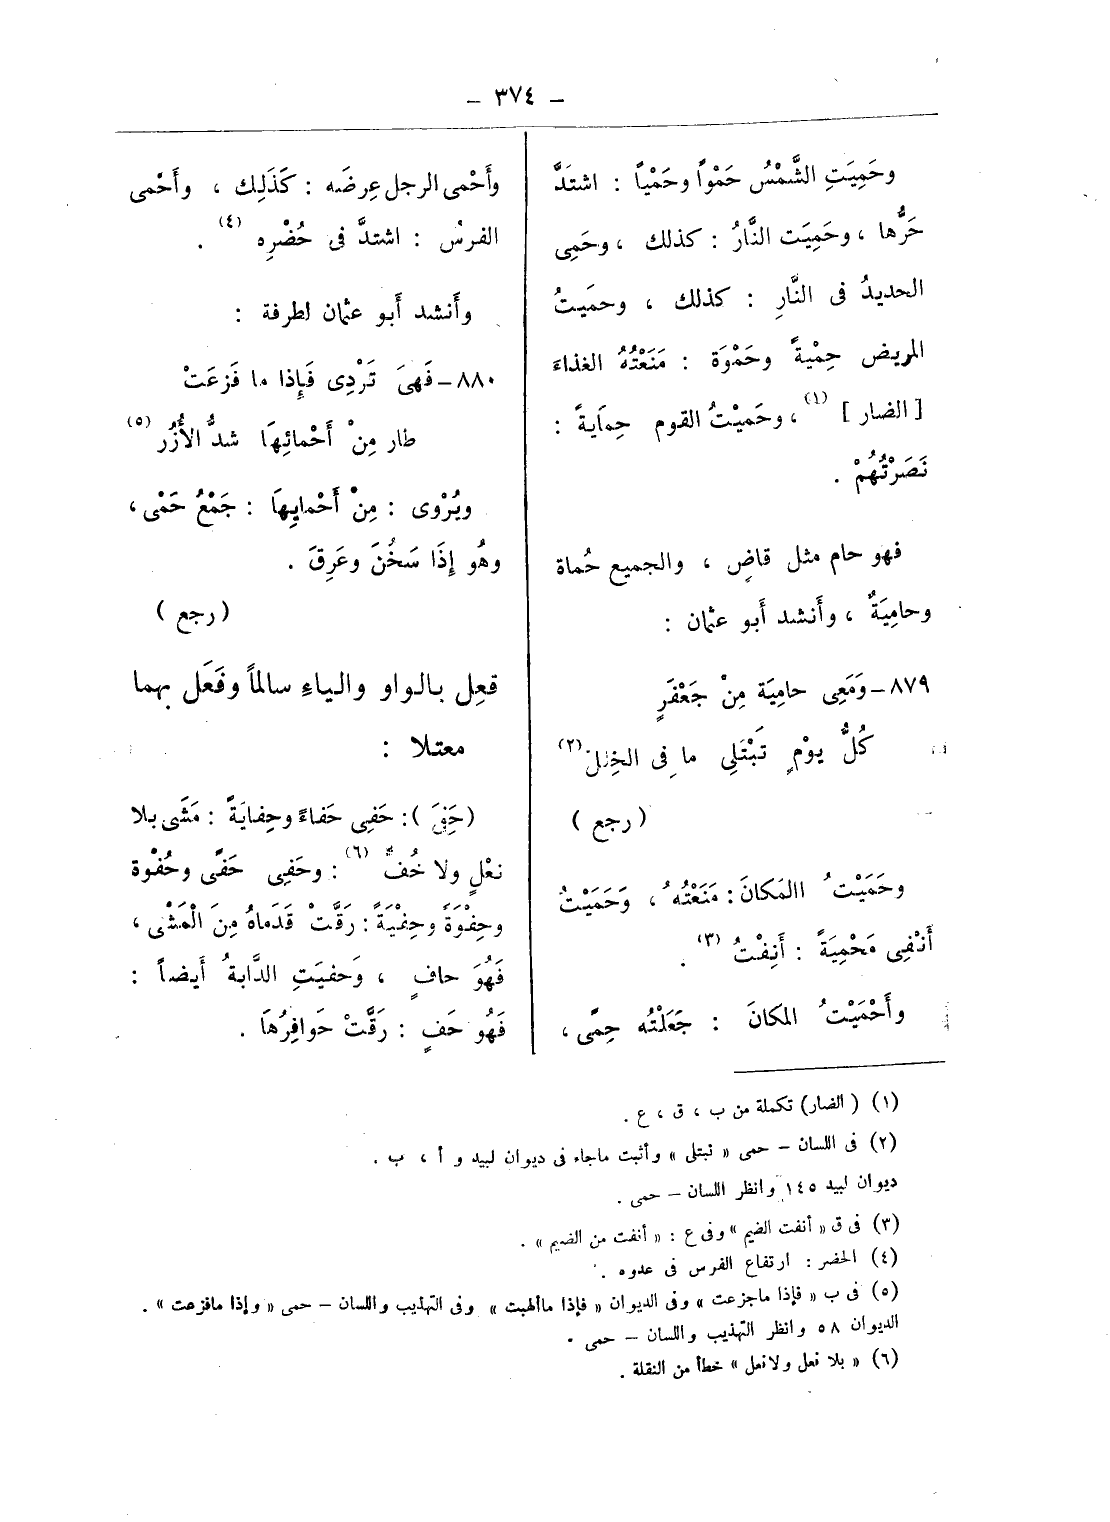 – ٣٧٤ –
وحَمِيَتِ الشَّمْسُ حَمْواً وحَمْياً : اشتَدَّ
حَرُّها ، وحَمِيَت النَّارُ : كذلك ، وحَمِى
الحديدُ فى النَّارِ : كذلك ، وحميتُ
المريض حِمْيةً وحَمْوَة : مَنَعْتُهُ الغذاءَ
[ الضار ] (١) ، وحَميْتُ القوم حِمَايةً :
نَصَرْتُهُمْ .
فهو حام مثل قاضٍ ، والجميع حُماة
وحامِيَةٌ ، وأَنشد أَبو عثمان :
٨٧٩ – وَمَعِى حامِيَة مِنْ جَعْفَرٍ
كُلَّ يوْمٍ تَبْتَلِى ما فِى الخِلَلْ (٢)
( رجع )
وحَمَيْتُ المَكانَ : مَنَعْتُه ، وَحَمَيْتُ
أَنْفِى مَحْمِيَةً : أَنِفْتُ (٣) .
وأَحْمَيْتُ المكانَ : جَعَلْتُه حِمًى ،
وأَحْمى الرجل عِرضَه : كَذَلِك ، وأَحْمى
الفرسُ : اشتدَّ فى حُضْرِه (٤) .
وأَنشد أَبو عثمان لطرفة :
٨٨٠ – فَهىَ تَرْدِى فَإِذا ما فَزعَتْ
طار مِنْ أَحْمائِهَا شدُّ الأُزُر (٥)
ويُرْوى : مِنْ أَحْمايِهَا : جَمْعُ حَمْى ،
وهُو إِذَا سَخُنَ وعَرِقَ .
( رجع )
فعِل بالواو والياءِ سالماً وفَعَل بهما
معتلا :
( حَفِىَ ) : حَفِى حَفاءً وحِفايَةً : مَشَى بلا
نعْلٍ ولا خُفٍّ (٦) : وحَفِى حَفًى وحُفْوة
وحِفْوَةً وحِفْيَةً : رَقَّتْ قَدَماهُ مِنَ الْمَشْى ،
فَهُوَ حافٍ ، وَحفيَتِ الدَّابةُ أَيضاً :
فَهُو حَفٍ : رَقَّتْ حَوافِرُهَا .
(١) ( الضار ) تكملة من ب ، ق ، ع .
(٢) فى اللسان – حمى « نبتلى » وأثبت ماجاء فى ديوان لبيد و أ ، ب .
ديوان لبيد ١٤٥ وانظر اللسان – حمى .
(٣) فى ق « أنفت الضيم » وفى ع : « أنفت من الضيم » .
(٤) الحضر : ارتفاع الفرس فى عدوه .
(٥) فى ب « فإذا ماجزعت » وفى الديوان « فإذا ماألهبت » وفى التهذيب واللسان – حمى « وإذا مافزعت » .
الديوان ٥٨ وانظر التهذيب واللسان – حمى .
(٦) « بلا نعل ولانعل » خطأ من النقلة .